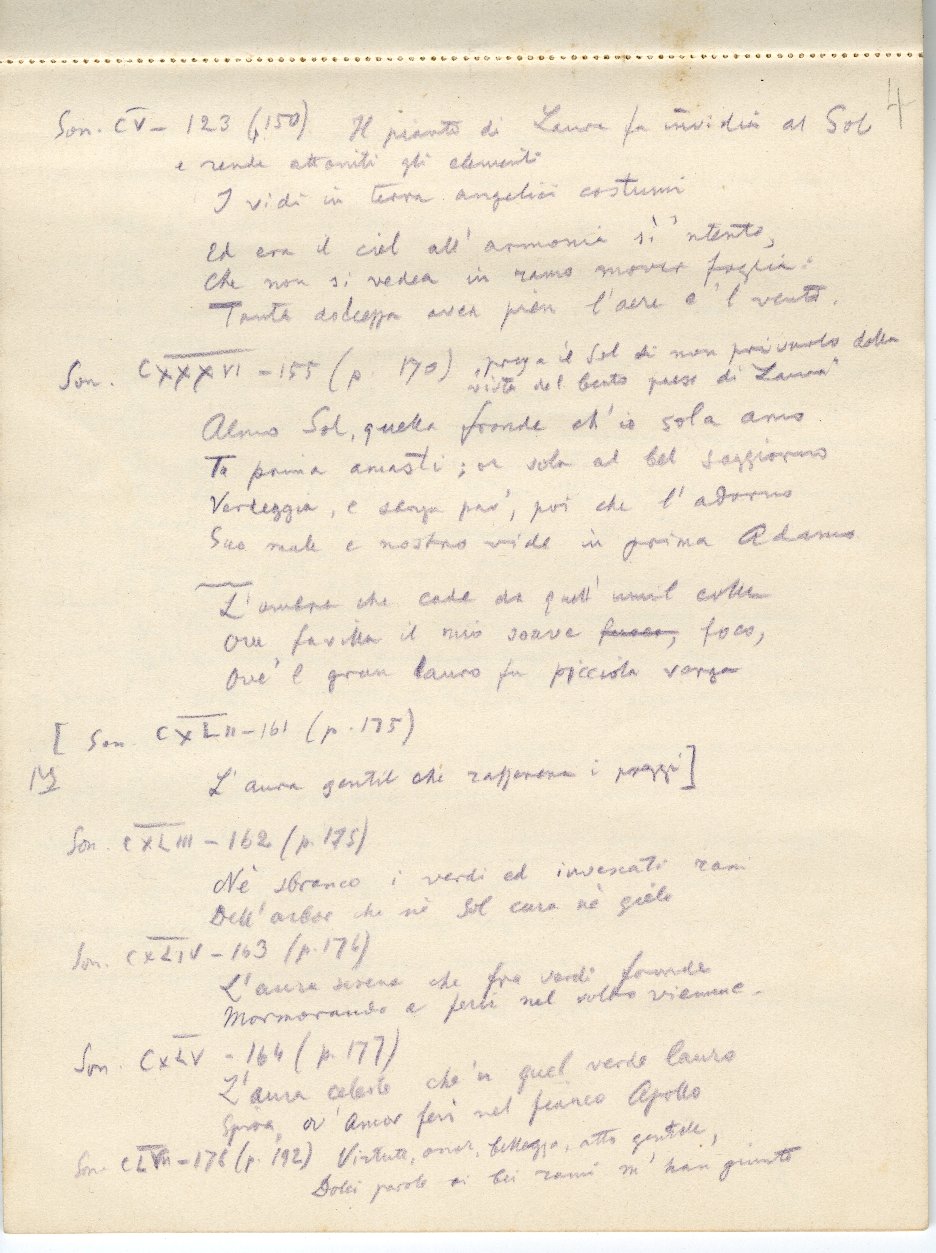 4
Son. CV - 123 (p. 150) Il pianto di Laura fa invidia al Sol
e rende attoniti gli elementi
I vidi in terra angelici costumi
Ed era il ciel all' armonia sì 'ntento,
Che non si vedea in ramo mover foglia:
Tanta dolcezza avea pien l'aere e 'l vento.
Son. CXXXVI - 155 (p 170) "prega il Sol di non privarlo della
vista del beato paese di Laura"
Almo Sol, quella fronde ch'io sola amo
Tu prima amasti; or sola al bel soggiorno
Verdeggia, e senza par, poi che l'adorno
Suo male e nostro vide in prima Adamo
L'ombra che cade da quell' umil colle
Ove favilla il mio soave fuoco, foco,
Ove 'l gran lauro fu picciola verga
[ Son. CXLII - 161 (p. 175)
L'aura gentil che rasserena i poggi ]
Son. CXLIII - 162 (p. 175)
Nè sbranco i verdi ed invescati rami
Dell'arbor che nè Sol cura nè gielo
Son. CXLIV - 163 (p. 176)
L'aura serena che fra verdi fronde
Mormorando a ferir nel volto viemme -
Son. CXLV - 164 (p. 177)
L'aura celeste che 'n quel verde lauro
Spira, ov' Amor ferì nel fianco Apollo
Son. CLVII - 176 (p. 192) Virtute, onor, bellezza, atto gentile,
Dolci parole ai bei rami m' han giunto